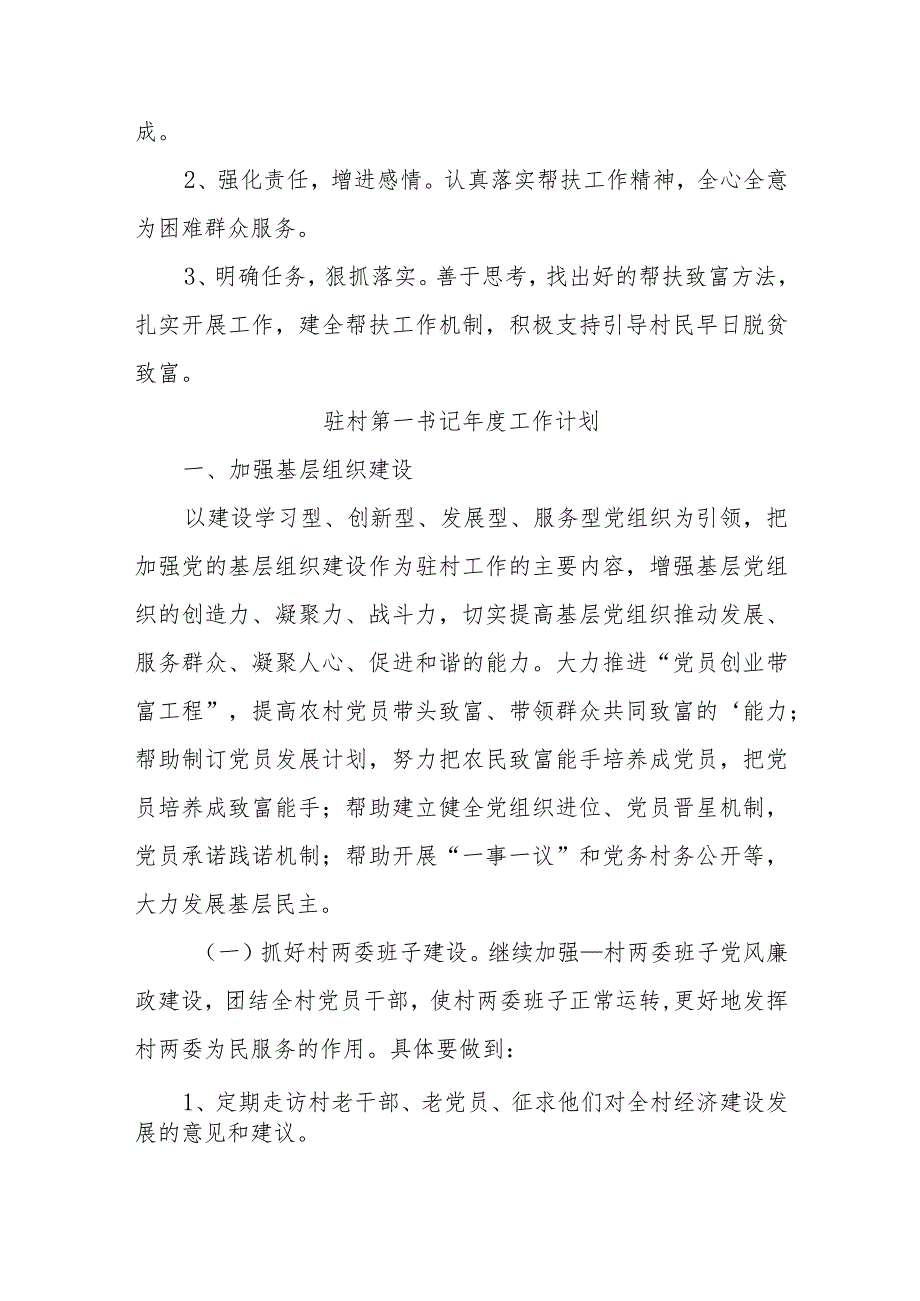 成。
2、强化责任，增进感情。认真落实帮扶工作精神，全心全意
为困难群众服务。
3、明确任务，狠抓落实。善于思考，找出好的帮扶致富方法，
扎实开展工作，建全帮扶工作机制，积极支持引导村民早日脱贫
致富。
驻村第一书记年度工作计划
一、加强基层组织建设
以建设学习型、创新型、发展型、服务型党组织为引领，把
加强党的基层组织建设作为驻村工作的主要内容，增强基层党组
织的创造力、凝聚力、战斗力，切实提高基层党组织推动发展、
服务群众、凝聚人心、促进和谐的能力。大力推进“党员创业带
富工程”，提高农村党员带头致富、带领群众共同致富的‘能力；
帮助制订党员发展计划，努力把农民致富能手培养成党员，把党
员培养成致富能手；帮助建立健全党组织进位、党员晋星机制，
党员承诺践诺机制；帮助开展“一事一议”和党务村务公开等，
大力发展基层民主。
（一）抓好村两委班子建设。继续加强—村两委班子党风廉
政建设，团结全村党员干部，使村两委班子正常运转,更好地发挥
村两委为民服务的作用。具体要做到：
1、定期走访村老干部、老党员、征求他们对全村经济建设发
展的意见和建议。